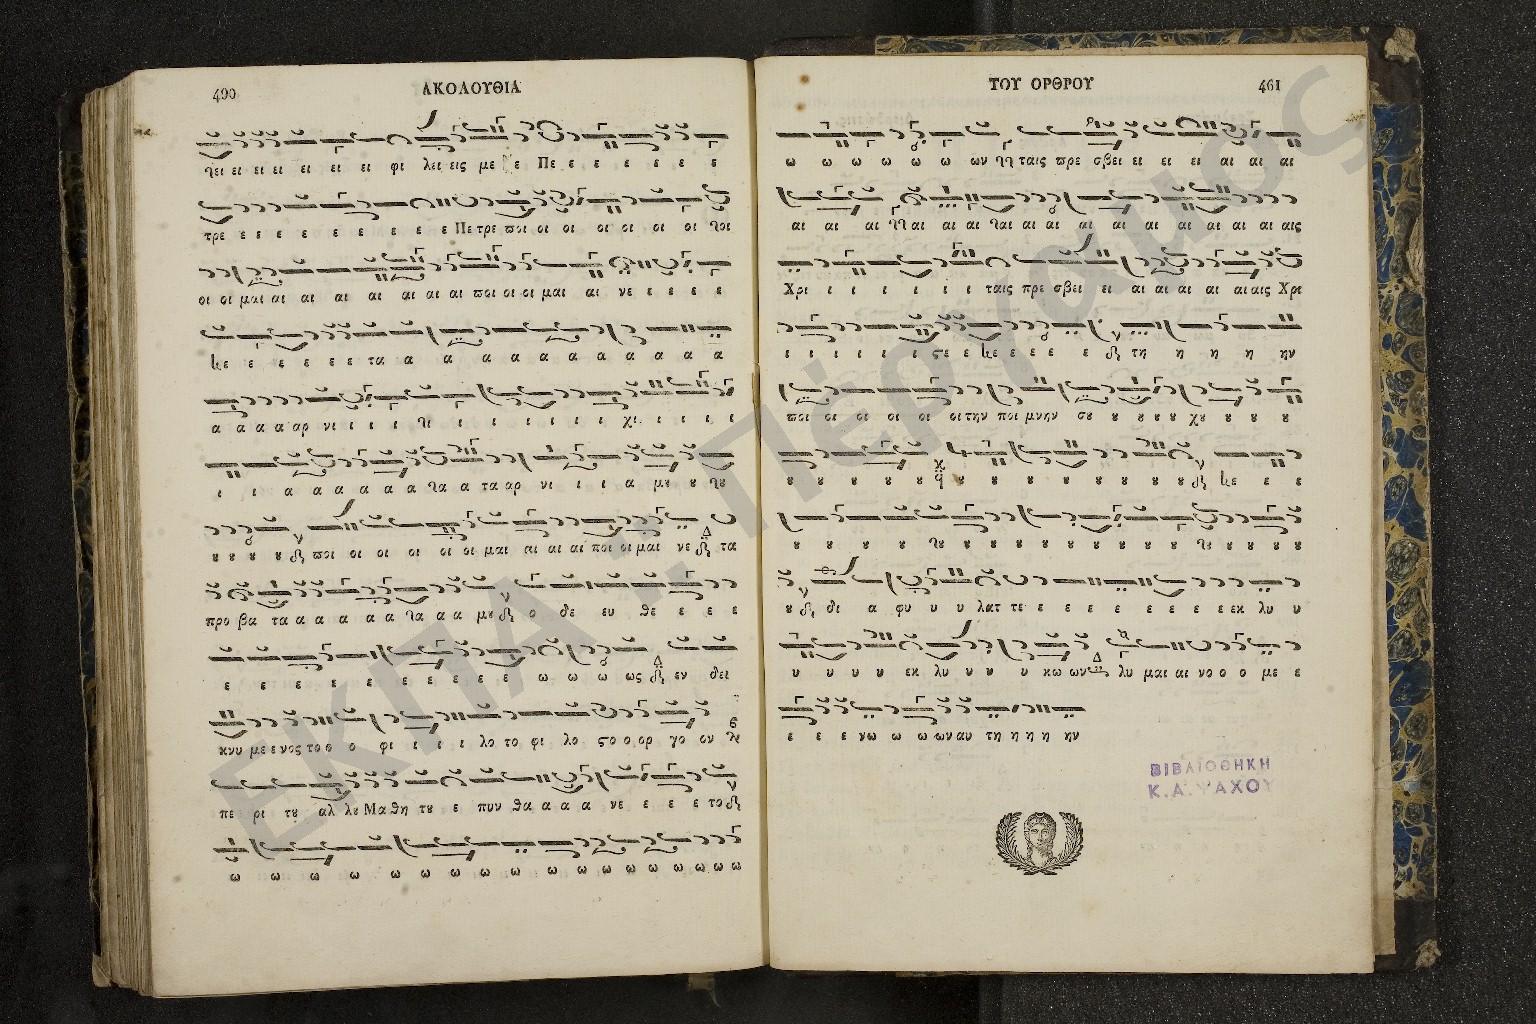 490 ΑΚΟΛΟΥΘΙΑ
ϟει ει ει ει ει ει ει φι λει εις με ε Πε ε ε ε ε ε ε ε
τρε ε ε ε ε ε ε ε ε ε ε Πε τρε ποι οι οι οι οι οι οι ϟοι
οι οι μαι αι αι αι αι αι αι αι ποι οι οι μαι αι νε ε ε ε ε
κε ε ε ε ε ε τα α α α α α α α α α α α α
α α α α αρ νι ι ι ι ϟι ι ι ι ι ι ι χι ι ι ι ι
ι ι α α α α α α ϟα α τα αρ νι ι ι α μυ ȣ ϟȣ
ȣ ȣ ȣ ȣ ποι οι οι οι οι οι μαι αι αι αι ποι οι μαι νε Δ τα
προ βα τα α α α α α ϟα α α μȣ ο δε ευ θε ε ε ε
ε ε ε ε ε ε ε ε ε ε ω ω ω ως Δ εν δει
κνυ με ε νος το ο ο φι ι ι ι λο το φι λο ϛο ο ορ γο ον
πε ρι τȣ αλ λȣ Μα θη τȣ ε πυν θα α α α νε ε ε ε το
ω ω ω ω ω ω ω ω ω ω ω ω ω ω ω
ΤΟΥ ΟΡΘΡΟΥ 461
ω ω ω ω ω ω ων ϟϟ ταις πρε σβει ει ει ει αι αι αι
αι αι αι ϟϟ αι αι αι ϟαι αι αι αι αι αι αι αι αι αι αις
Χρι ι ι ι ι ι ι ταις πρε σβει ει αι αι αι αι αι αις Χρι
ι ι ι ι ι ι ϛε ε κε ε ε ε ε ε τη η η η ην
ποι οι οι οι οι οι την ποι μνην σȣ ȣ ȣ ȣ ȣ χȣ ȣ ȣ ȣ
ȣ ȣ ȣ ȣ ȣ ȣ ȣ ȣ ȣ ȣ ȣ ȣ ȣ ȣ κε ε ε
ȣ ȣ ȣ ȣ ϟȣ ȣ ȣ ȣ ȣ ȣ ȣ ȣ ȣ ȣ ϟȣ ȣ ȣ ȣ
ȣ δι α φυ υ υ λατ τε ε ε ε ε ε ε ε ε εκ λυ υ
υ υ υ υ εκ λυ υ υ υ κω ων Δ λυ μαι αι νο ο ο με ε
ε ε ε νω ω ω ων αυ τη η η η ην
ΒΙΒΛΙΟΘΗΚΗ
Κ. Α. ΨΑΧΟΥ
ΕΚΠΑ : Πέργαμος